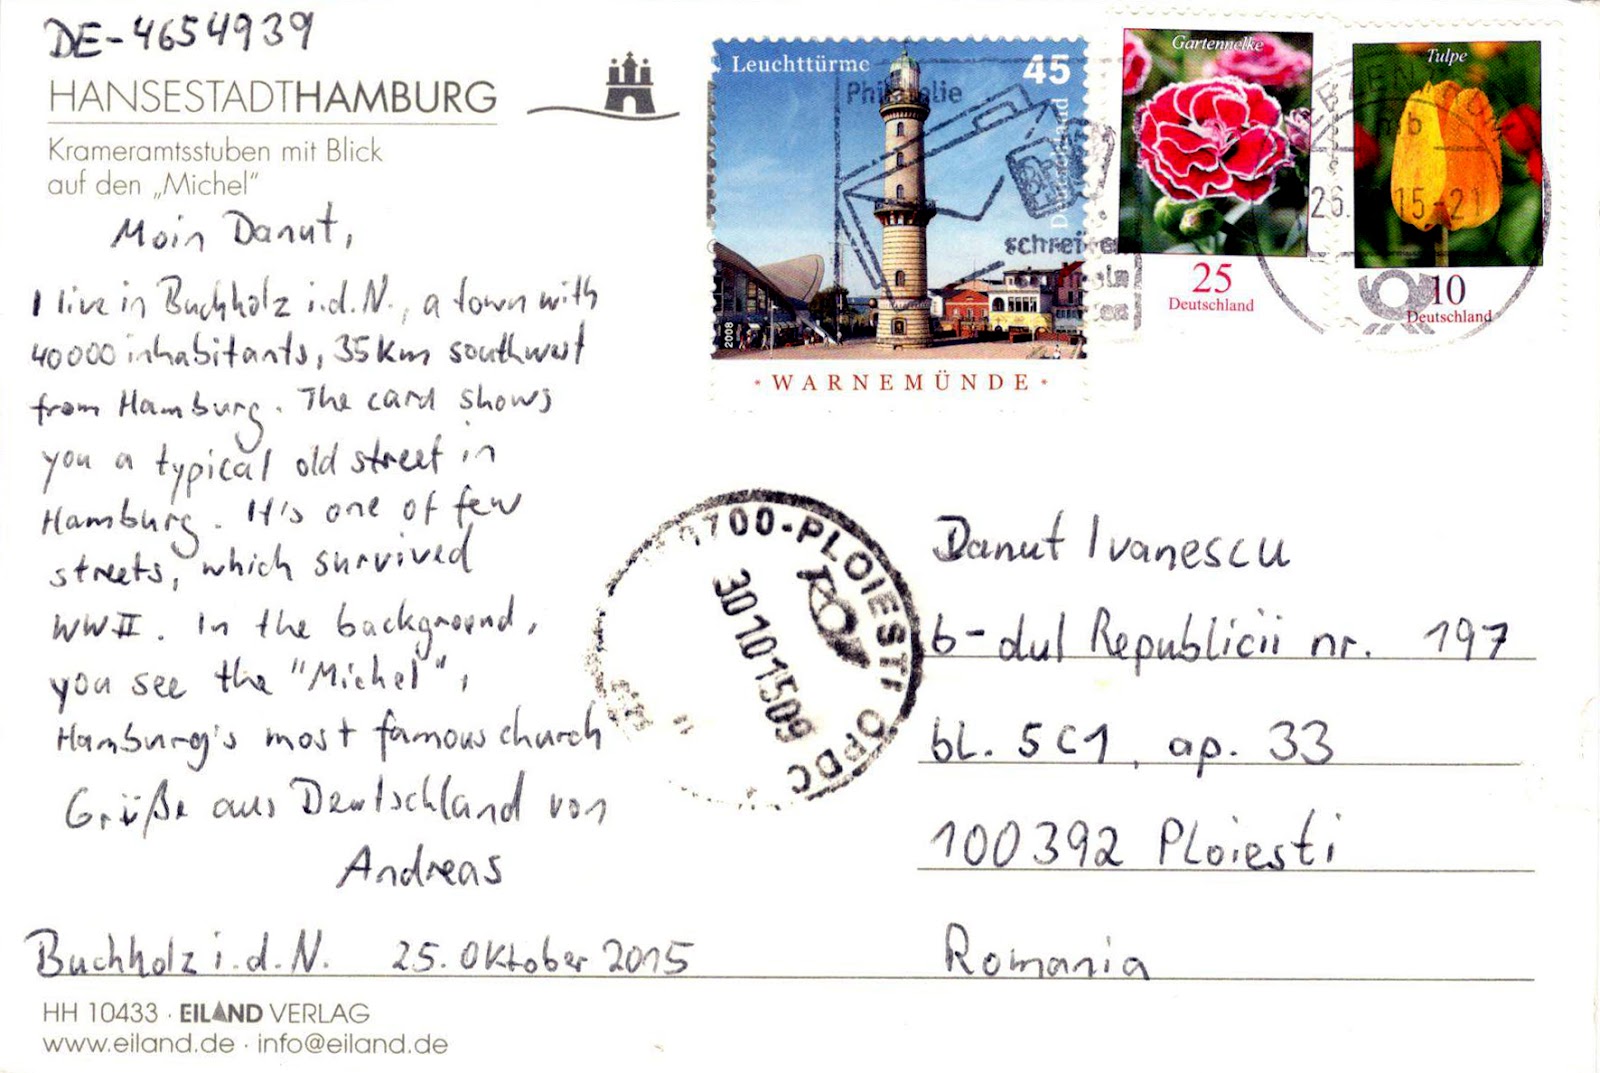 DE-4654939
HANSESTADTHAMBURG
Krameramtsstuben mit Blick
auf den „Michel"
Moin Danut,
I live in Buchholz i.d.N., a town with
40000 inhabitants, 35 km southwest
from Hamburg. The card shows
you a typical old street in
Hamburg. It's one of few
streets, which survived
WWII. In the background,
you see the "Michel",
Hamburg's most famous church
Grüße aus Deutschland von
Andreas
Buchholz i.d.N. 25. Oktober 2015
HH 10433 · EILAND VERLAG
www.eiland.de · info@eiland.de
Leuchttürme 45
Deutschland
2008
* WARNEMÜNDE *
Philatelie
schreiben
Gartennelke
25
Deutschland
Tulpe
10
Deutschland
26. 15-21
PLOIESTI
30101509
Danut Ivanescu
b-dul Republicii nr. 197
bL. 5C1, ap. 33
100392 Ploiesti
Romania